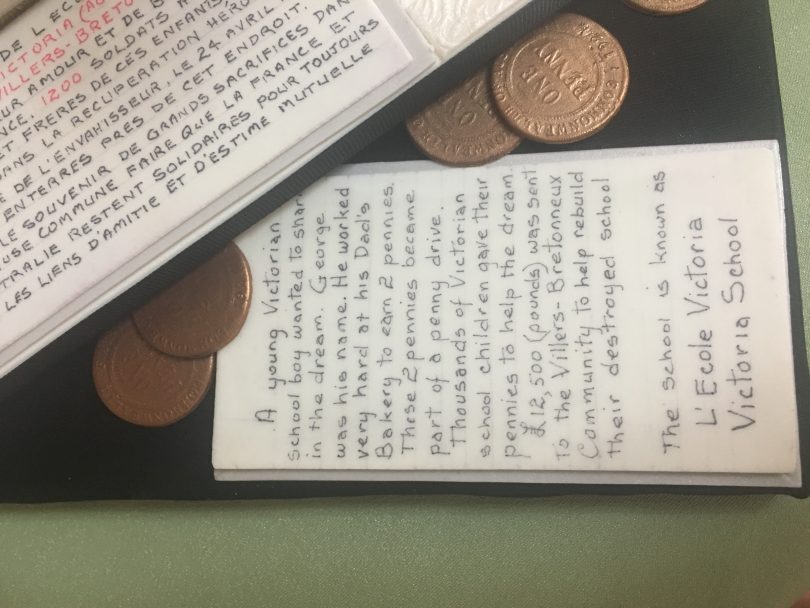 DE L'ECO
VICTORIA (AU
VILLERS-BRETO
UR AMOUR ET DE B
NCE. 1200 SOLDATS A
ET FRERES DE CES ENFANTS
DANS LA RECUPERATION HERO
E DE L'ENVAHISSEUR, LE 24 AVRIL
ENTERRES PRES DE CET ENDROIT.
LE SOUVENIR DE GRANDS SACRIFICES DAN
USE COMMUNE FAIRE QUE LA FRANCE ET
TRALIE RESTENT SOLIDAIRES POUR TOUJOURS
LES LIENS D'AMITIE ET D'ESTIME MUTUELLE
A young Victorian
School boy wanted to shar
in the dream. George
was his name. He worked
very hard at his Dad's
Bakery to earn 2 pennies.
These 2 pennies became
part of a penny drive.
Thousands of Victorian
school children gave their
pennies to help the dream.
£12,500 (pounds) was sent
to the Villers-Bretonneux
Community to help rebuild
their destroyed school
The school is known as
L'Ecole Victoria
Victoria School
ONE
PENNY
ONE